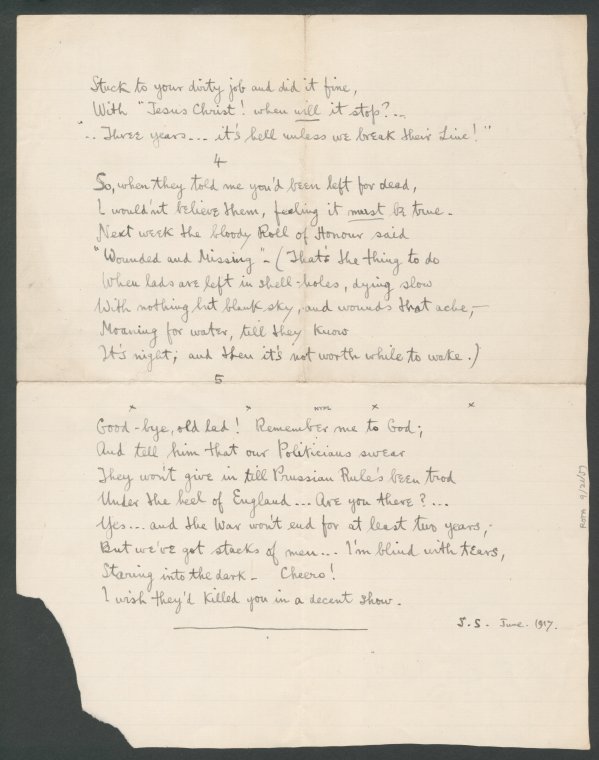 Stuck to your dirty job and did it fine,
With "Jesus Christ! when will it stop?...
".. Three years... it's hell unless we break their Line!"
4
So, when they told me you'd been left for dead,
I wouldn't believe them, feeling it must be true.
Next week the bloody Roll of Honour said
"Wounded and Missing" - (That's the thing to do
When lads are left in shell-holes, dying slow
With nothing but blank sky, and wounds that ache,-
Moaning for water, till they know
It's night; and then it's not worth while to wake.)
5
x x NYPL x x
Good-bye, old lad! Remember me to God;
And tell him that our Politicians swear
They won't give in till Prussian Rule's been trod
Under the heel of England... Are you there?...
Yes... and the War won't end for at least two years,-
But we've got stacks of men... I'm blind with tears,
Staring into the dark - Cheero!
I wish they'd killed you in a decent show.
S.S. June. 1917.
Rota 9/21/57